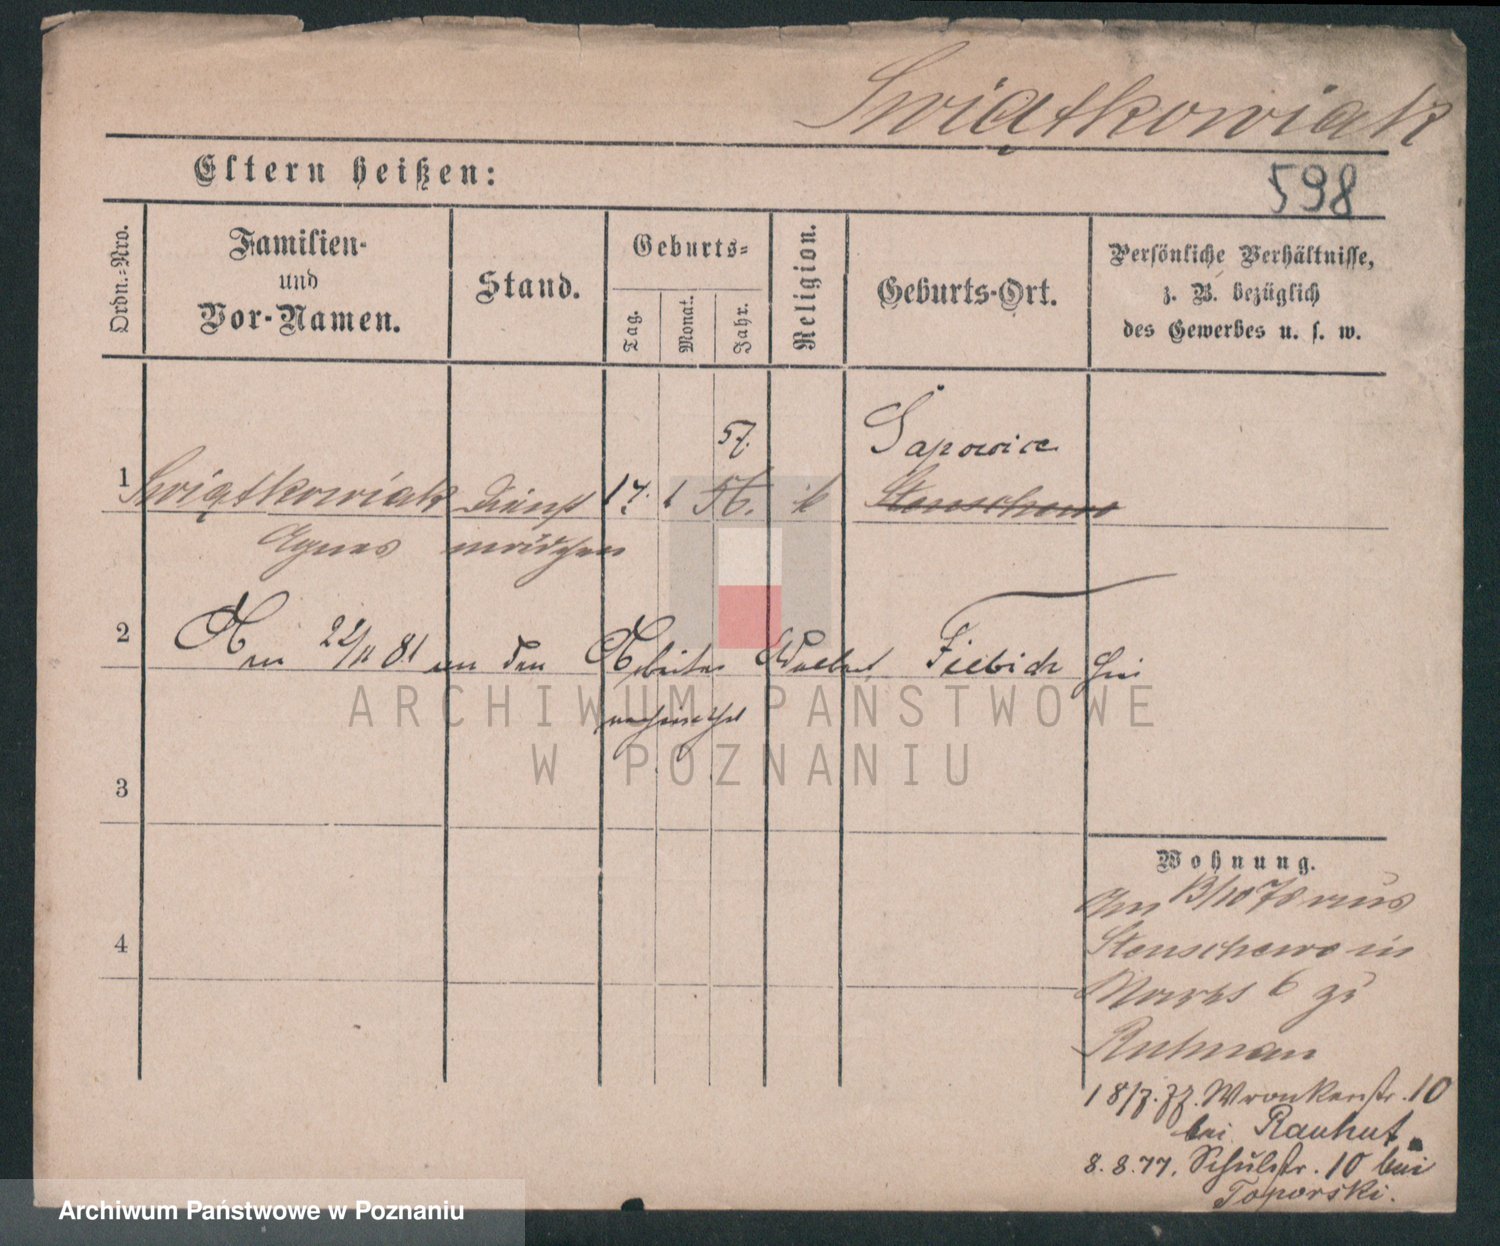 Swiątkowiak
Eltern heißen:
598
Ordn.-Nro.
Familien-
und
Vor-Namen.
Stand.
Geburts-
Tag.
Monat.
Jahr.
Religion.
Geburts-Ort.
Persönliche Verhältnisse,
z. B. bezüglich
des Gewerbes u. s. w.
57.
Sapowice
1 Swiątkowiak Dienst 17. 1 56. k Stenschewo
Agnes mädchen
2 Am 22/11 81 an den Arbeiter Fiebich hier
verheirathet
3
4
Wohnung.
Am 13/10 76 aus
Stenschewo in
Markt 6 zu
Rutman
18/7. 77. Wronkerstr. 10
bei Rauhut.
8. 8. 77. Schulstr. 10 bei
Toporski.
ARCHIWUM PAŃSTWOWE
W POZNANIU
Archiwum Państwowe w Poznaniu